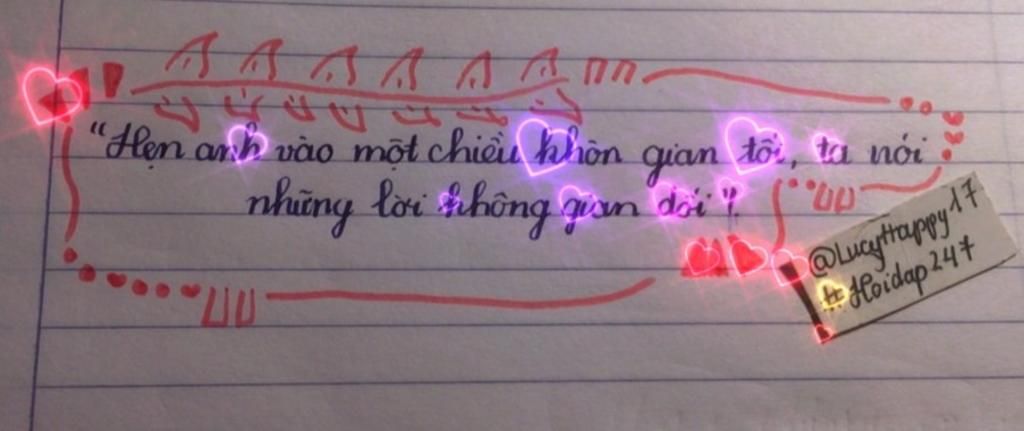 "Hẹn anh vào một chiều khôn gian tối, ta nói
những lời không gian dối".
@LucyHappy17
#Hoidap247